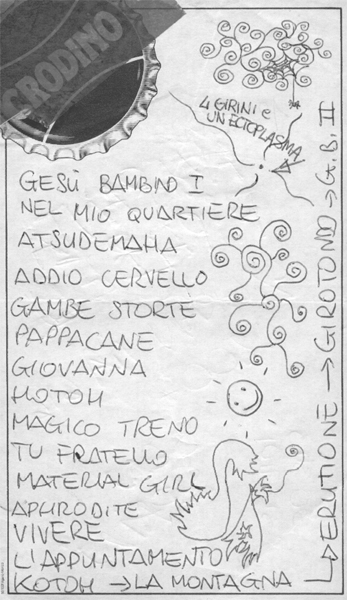 CRODINO
4 GIRINI e
UN ECTOPLASMA
GESÙ BAMBINO I
NEL MIO QUARTIERE
ATSUDEMAHA
ADDIO CERVELLO
GAMBE STORTE
PAPPACANE
GIOVANNA
HOTOH
MAGICO TRENO
TU FRATELLO
MATERIAL GIRL
APHRODITE
VIVERE
L'APPUNTAMENTO
KOTOH → LA MONTAGNA
↳ ERUTIONE → GIROTONDO → G.B. II